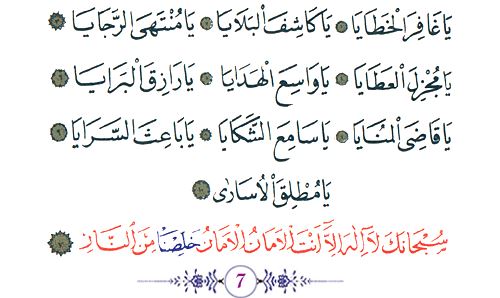 يَا غَافِرَ الْخَطَايَا يَا كَاشِفَ الْبَلَايَا يَا مُنْتَهَى الرَّجَايَا
يَا مُجْزِلَ الْعَطَايَا يَا وَاسِعَ الْهَدَايَا يَا رَازِقَ الْبَرَايَا
يَا قَاضِىَ الْمَنَايَا يَا سَامِعَ الشَّكَايَا يَا بَاعِثَ السَّرَايَا
يَا مُطْلِقَ الْاُسَارٰى
سُبْحَانَكَ لَٓا اِلٰهَ اِلَّٓا اَنْتَ الْاَمَانُ الْاَمَانُ خَلِّصْنَا مِنَ النَّارِ
7